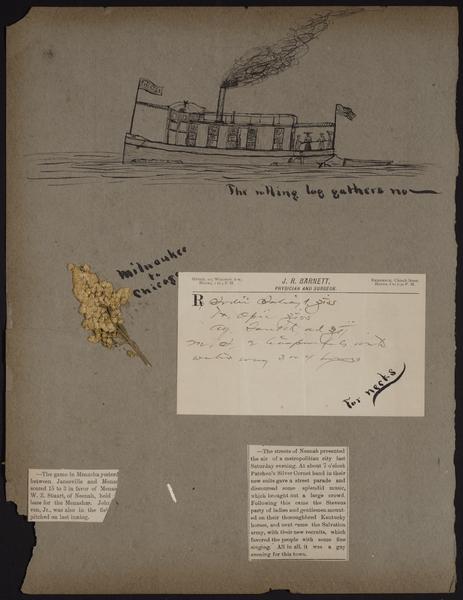 The rolling log gathers no
Milwaukee
to
Chicago
J. R. BARNETT,
PHYSICIAN AND SURGEON.
for necks
—The game in Menasha yesterd
between Janesville and Menas
scored 15 to 3 in favor of Menas
W. Z. Stuart, of Neenah, held
base for the Menashas. John
ven, Jr., was also in the fie
pitched on last inning.
—The streets of Neenah presented
the air of a metropolitan city last
Saturday evening. At about 7 o'clock
Patchen's Silver Cornet band in their
new suits gave a street parade and
discoursed some splendid music,
which brought out a large crowd.
Following this came the Stevens
party of ladies and gentlemen mount-
ed on their thoroughbred Kentucky
horses, and next came the Salvation
army, with their new recruits, which
favored the people with some fine
singing. All in all, it was a gay
evening for this town.